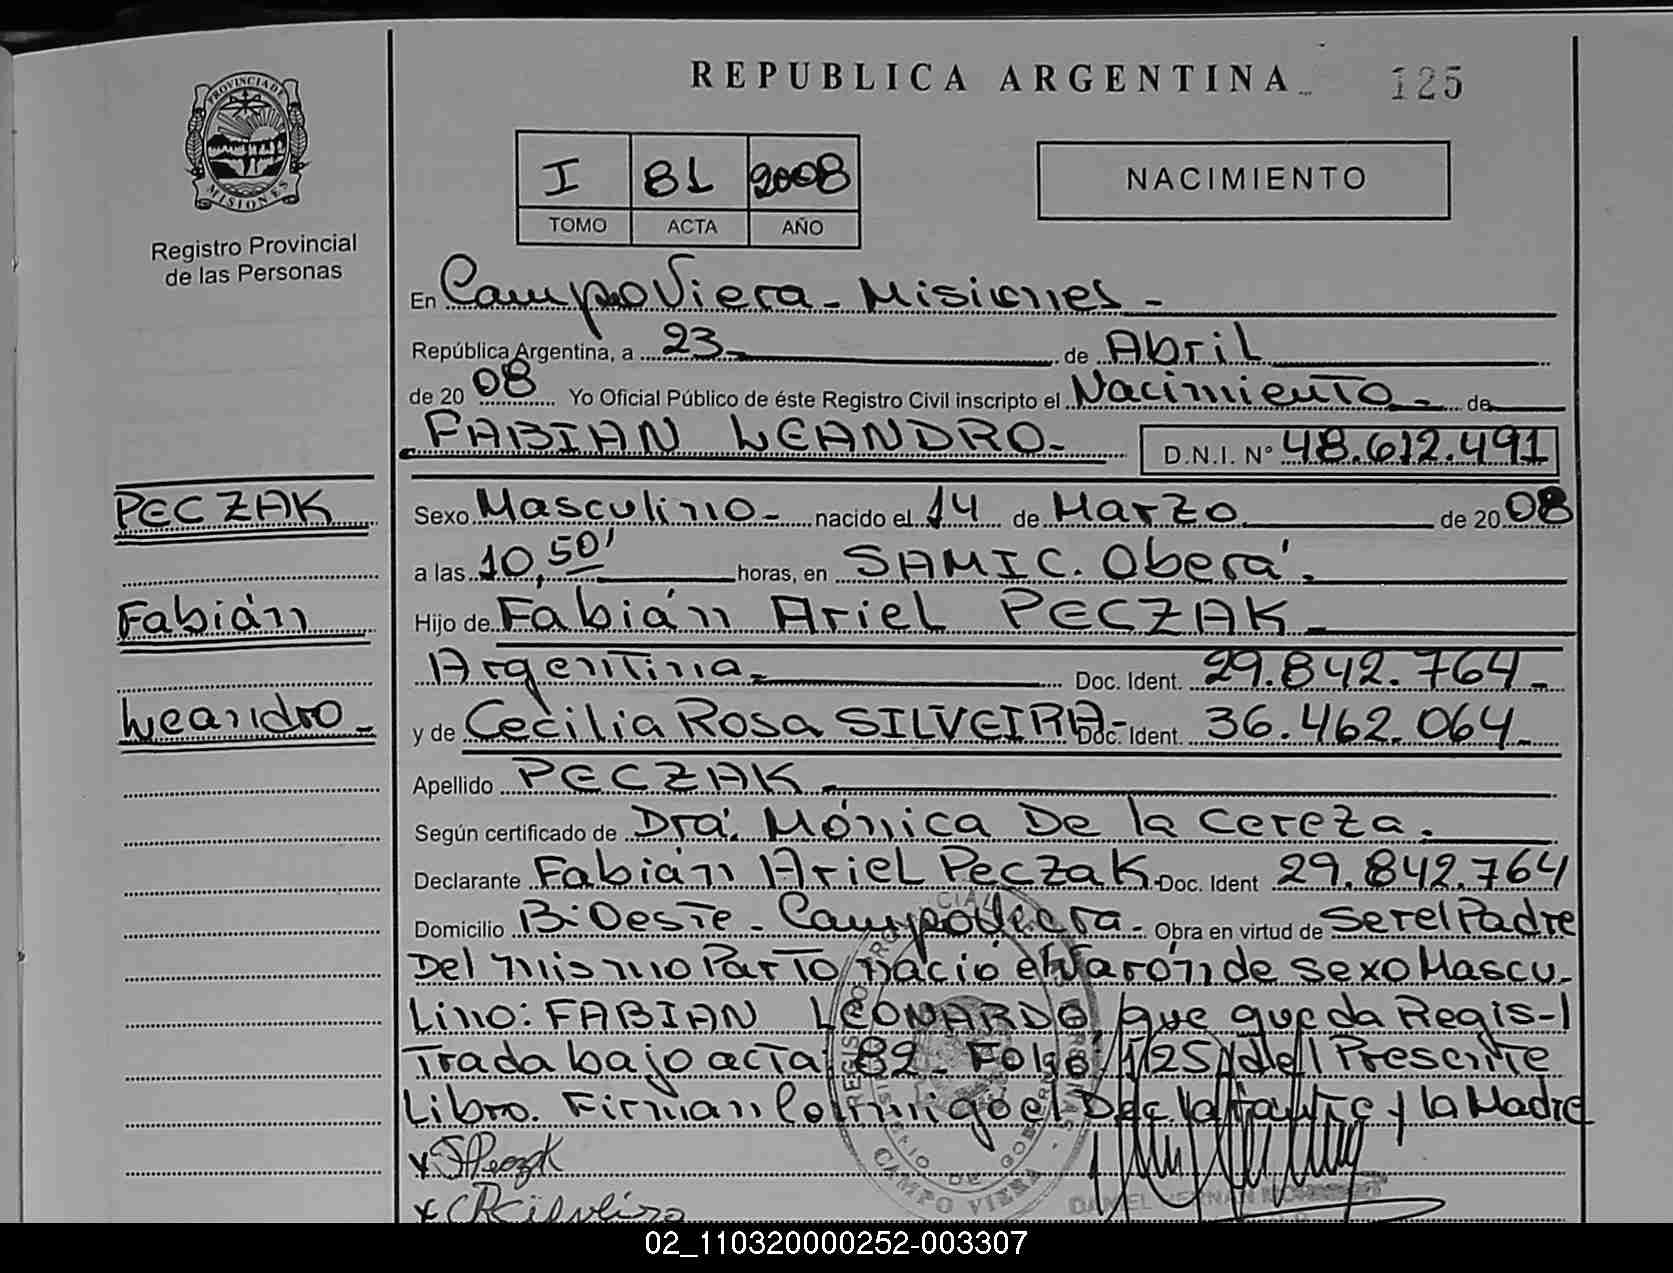 REPUBLICA ARGENTINA
125
PROVINCIA DE
MISIONES
Registro Provincial
de las Personas
I 81 2008
TOMO ACTA AÑO
NACIMIENTO
En Campo Viera - Misiones -
República Argentina, a 23 de Abril
de 20 08 Yo Oficial Público de éste Registro Civil inscripto el Nacimiento de
FABIAN LEANDRO- D.N.I. N° 48.612.491
PECZAK
Fabián
Leandro -
Sexo Masculino - nacido el 14 de Marzo de 20 08
a las 10,50' horas, en SAMIC. Oberá.
Hijo de Fabián Ariel PECZAK -
Argentina - Doc. Ident. 29.842.764 -
y de Cecilia Rosa SILVEIRA- Doc. Ident. 36.462.064 -
Apellido PECZAK -
Según certificado de Dra. Mónica De la Cereza.
Declarante Fabián Ariel Peczak - Doc. Ident 29.842.764
Domicilio B: Oeste - Campo Viera - Obra en virtud de Ser el Padre
Del mismo Parto nació el Varón de sexo Mascu-
Lino: FABIAN LEONARDO, que queda Regis-
Trada bajo acta 82 - Folio 125 del Presente
Libro. Firman Conmigo el Declarante y la Madre
x FPeczak
x CRSilveira
CAMPO VIERA
02_110320000252-003307